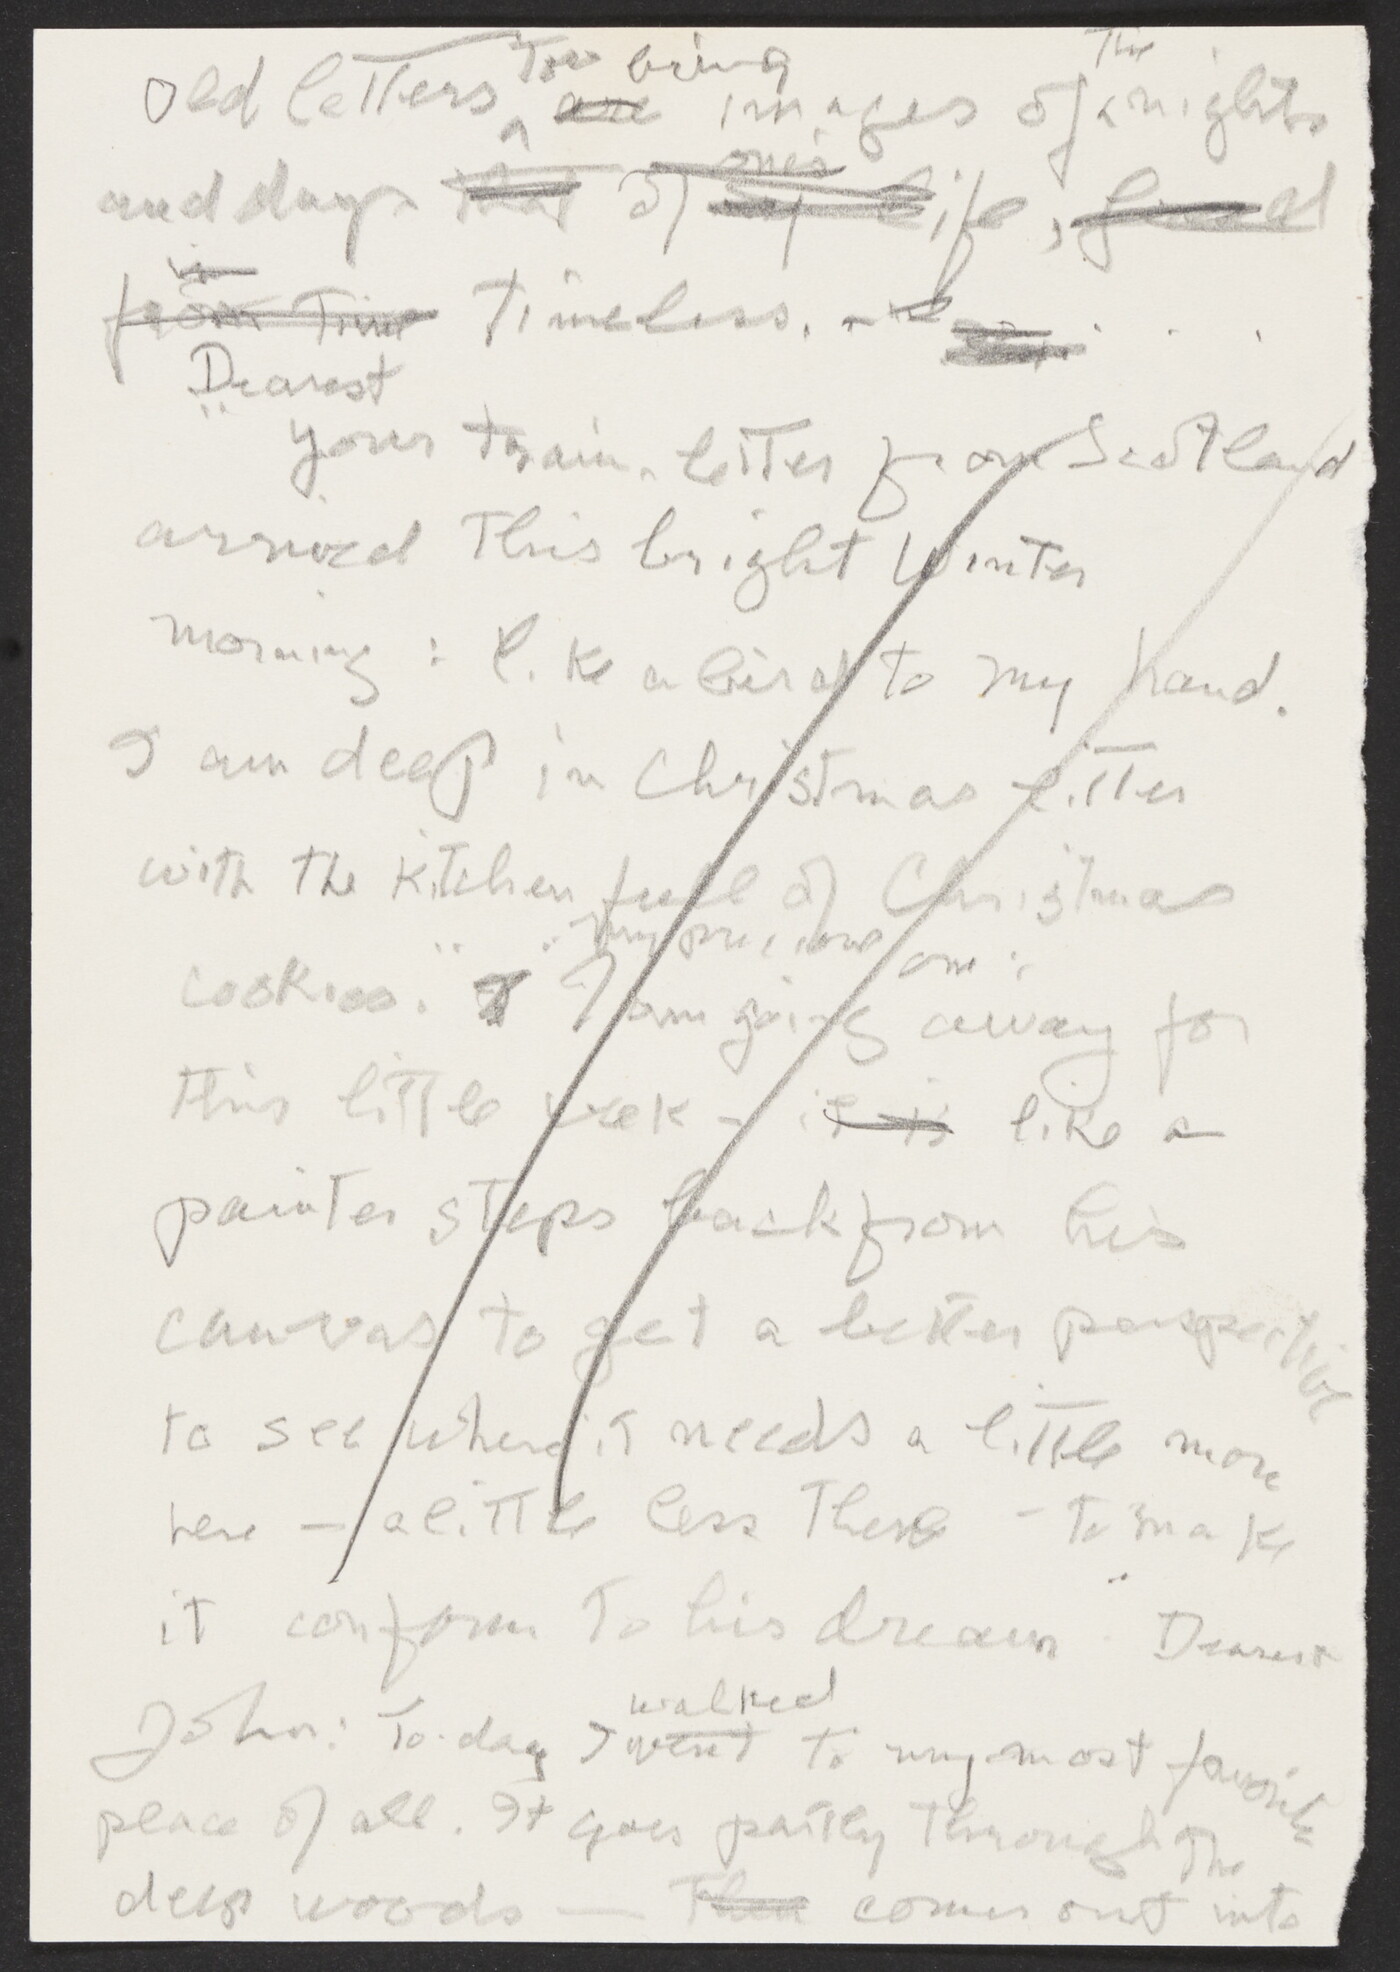 Too being The
Old letters are images of nights
one's
and days that of my life, freed
in
from Time Timeless.
Dearest
" Your train-letter from Scotland
arrived This bright Winter
morning: like a bird to my hand.
I am deep in Christmas litter
with the kitchen full of Christmas
My precious one:
cookies." I "I am going away for
This little week - it is like a
painter steps back from his
canvas to get a better perspective
to see where it needs a little more
here — a little less There - to make
it conform To his dream" Dearest
walked
John: To-day I went to my most favorite
place of all. It goes partly Through The
deep woods — Then comes out into